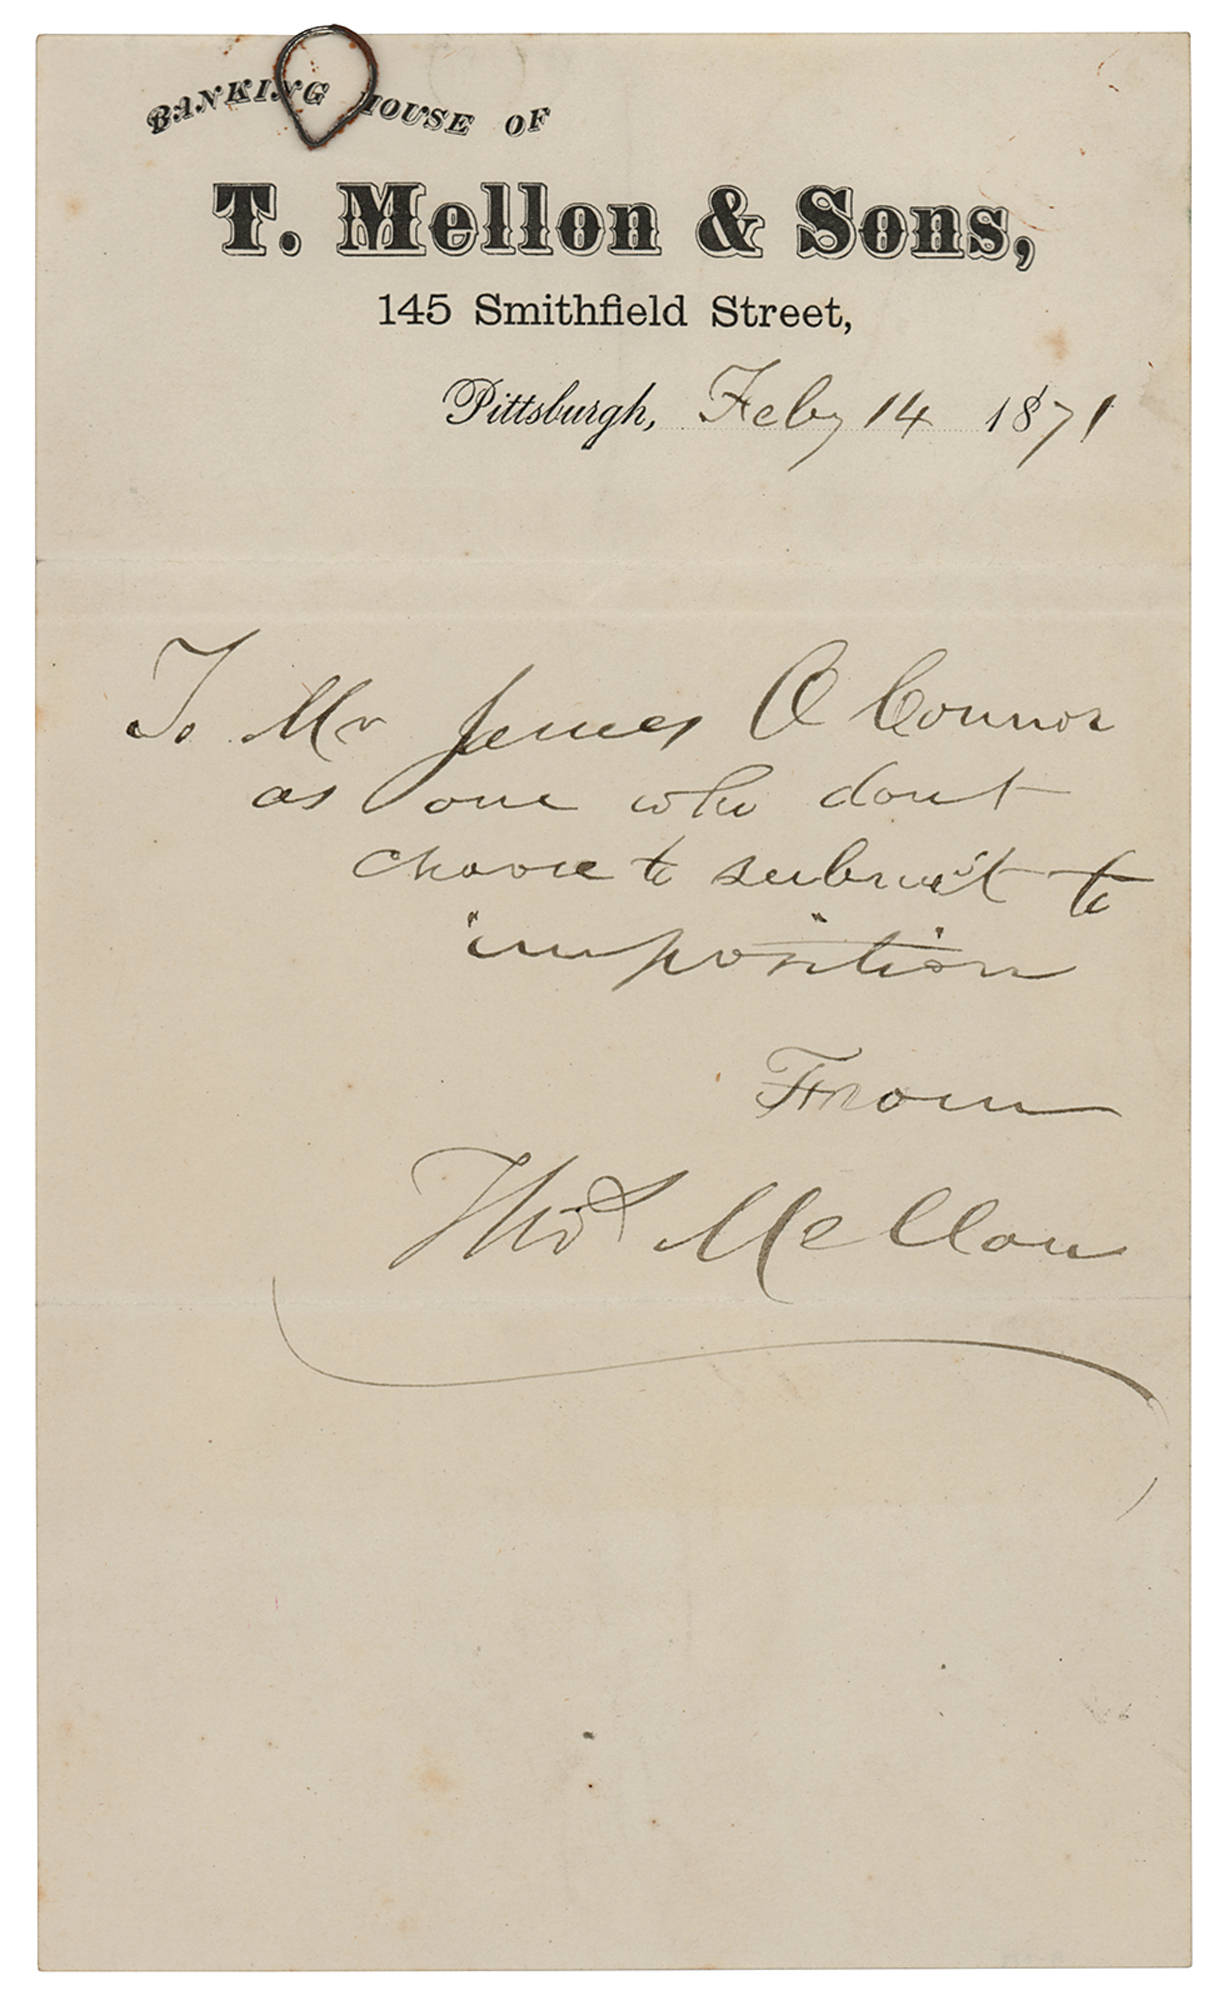 BANKING HOUSE OF
T. Mellon & Sons,
145 Smithfield Street,
Pittsburgh, Feby 14 1871
To Mr James O Connor
as one who dont
choose to submit to
imposition
From
Thos Mellon